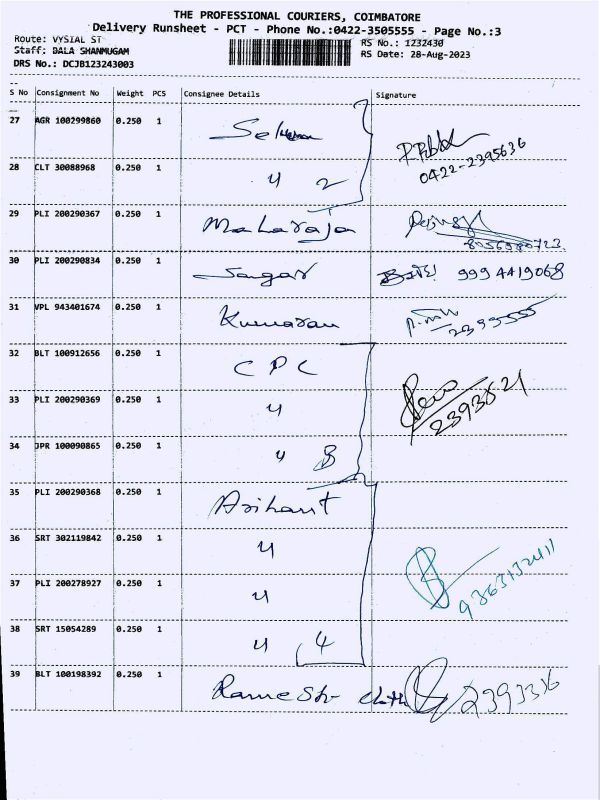 THE PROFESSIONAL COURIERS, COIMBATORE
Delivery Runsheet - PCT - Phone No.:0422-3505555 - Page No.:3
Route: VYSIAL ST
RS No.: 1232430
Staff: BALA SHANMUGAM
RS Date: 28-Aug-2023
DRS No.: DCJB123243003
S No Consignment No Weight PCS Consignee Details Signature
27 AGR 100299860 0.250 1
0422-2395636
28 CLT 30088968 0.250 1 〃 2
29 PLI 200290367 0.250 1 Maharaja
8056980723
30 PLI 200290834 0.250 1 Sangar 999 4419068
31 VPL 943401674 0.250 1 Kumaran
2393555
32 BLT 100912656 0.250 1 CPC
33 PLI 200290369 0.250 1 〃
2393521
34 JPR 100090865 0.250 1 〃 3
35 PLI 200290368 0.250 1 Arihant
36 SRT 302119842 0.250 1 〃
9363132411
37 PLI 200278927 0.250 1 〃
38 SRT 15054289 0.250 1 〃 4
39 BLT 100198392 0.250 1 Ramesh 2393336